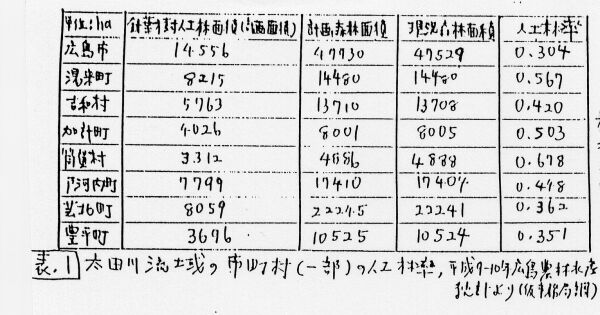 単位:ha 計画対計人工林面積(計画面積) 計画森林面積 現況森林面積 人工林率
広島市 14556 47730 47529 0.304
湯来町 8215 14480 14480 0.567
吉和村 5763 13710 13708 0.420
加計町 4026 8001 8005 0.503
筒賀村 3312 4886 4888 0.678
戸河内町 7799 17410 17407 0.448
芸北町 8059 22245 22241 0.362
豊平町 3676 10525 10524 0.351
表.1 太田川流土或の市町村(一部)の人工林率,平成9-10年広島農林水産
統計より(仮事務局調)